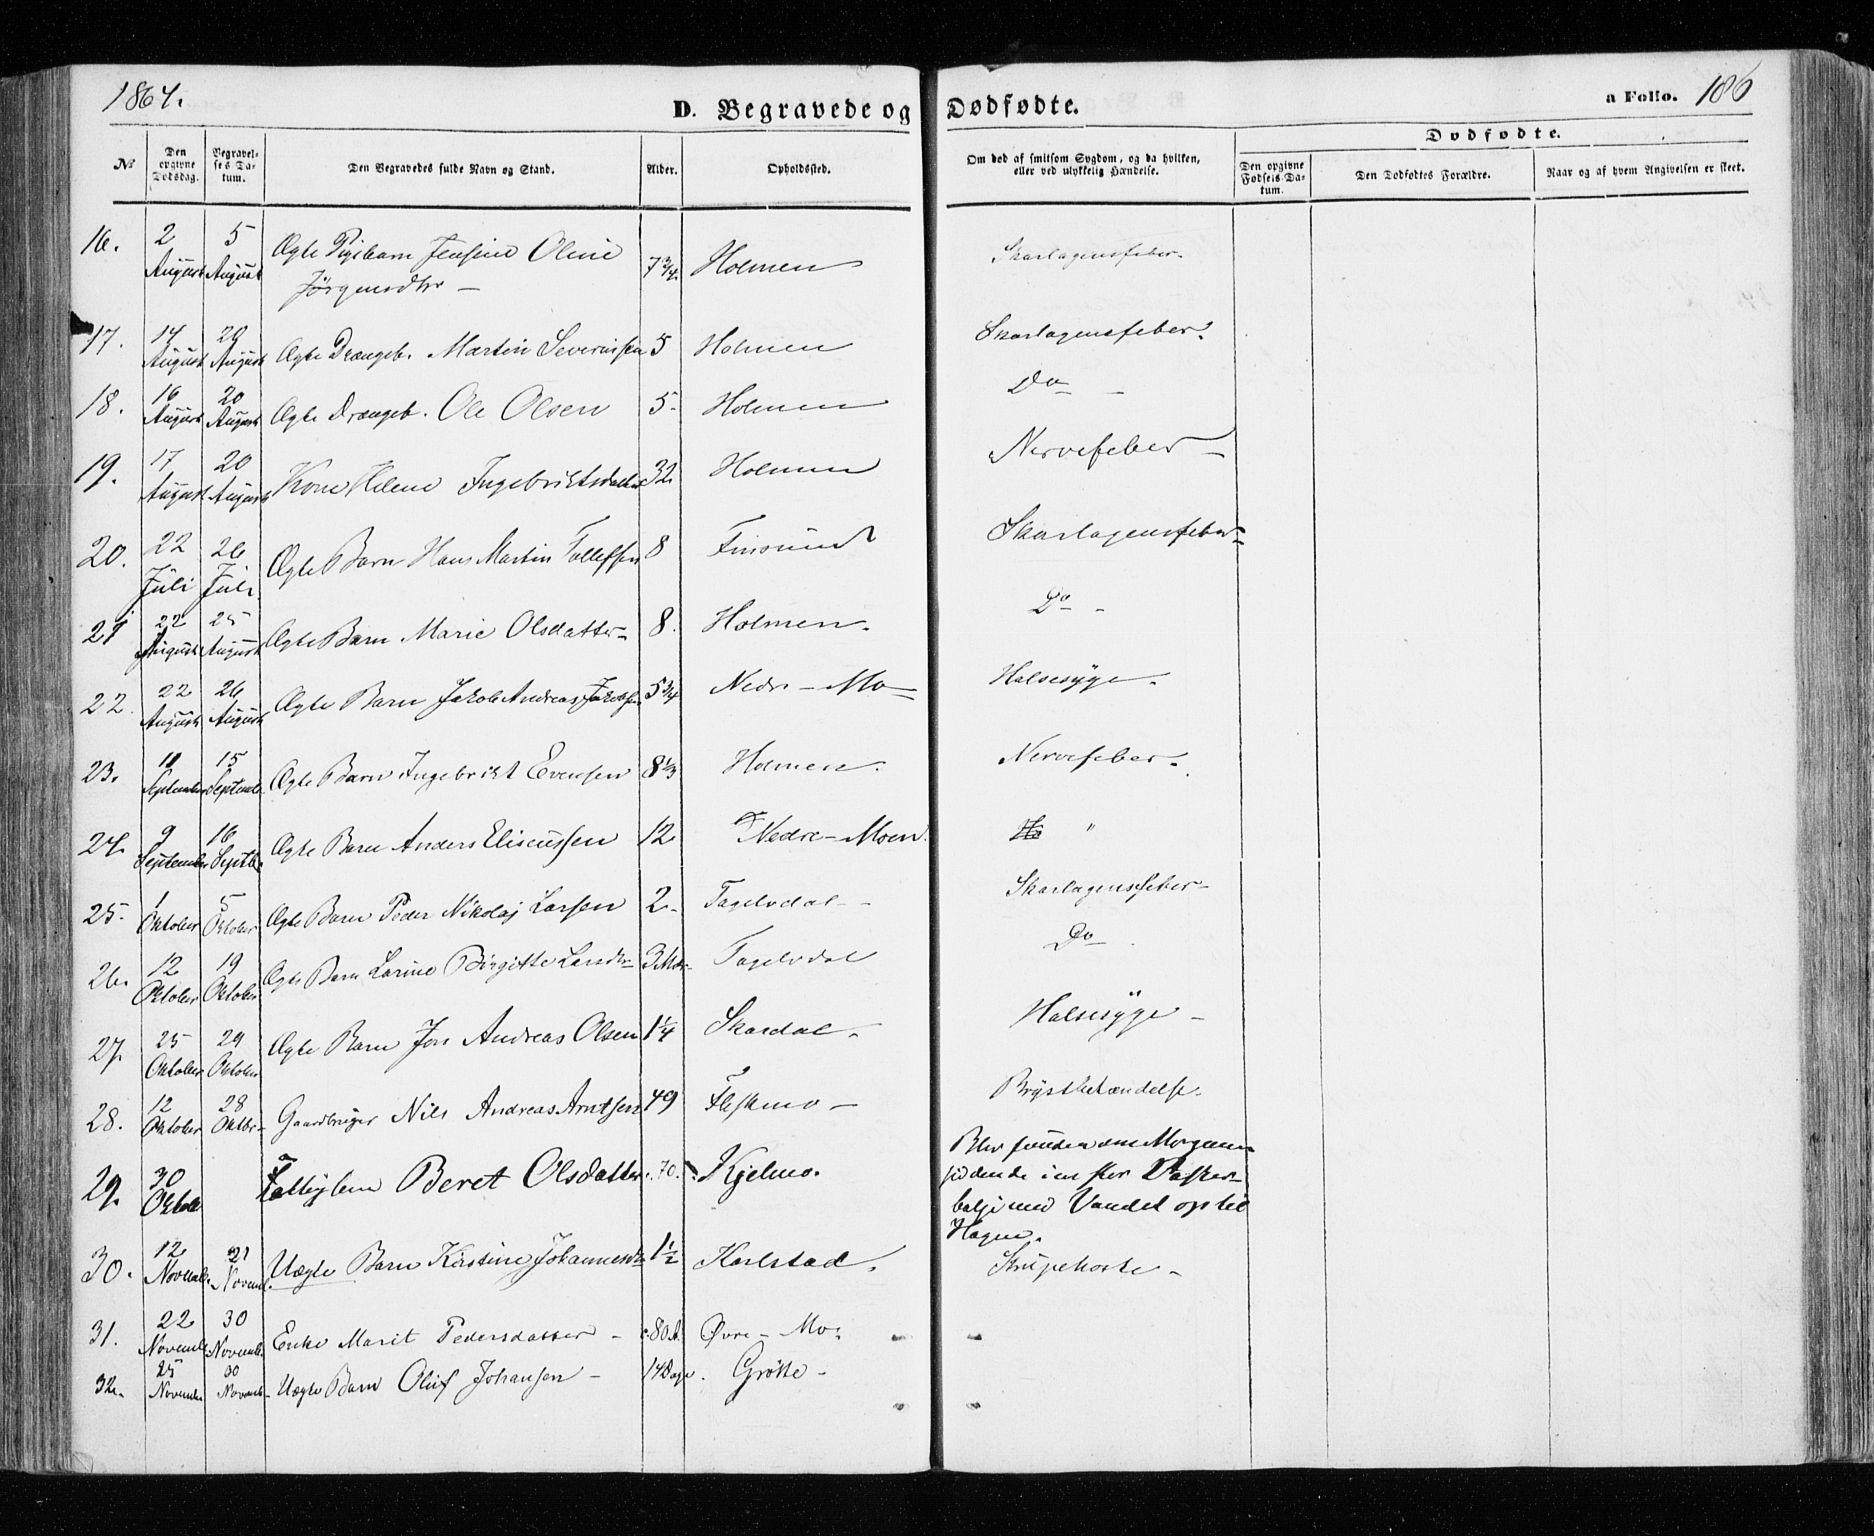 1864.
D. Begravede og Dødfødte.
a Folio. 186
No
Den opgivne Dødsdag.
Begravelses Datum.
Den Begravedes fulde Navn og Stand.
Alder.
Opholdssted.
Om død af smitsom Sygdom, og da hvilken, eller ved ulykkelig Hændelse.
Dødfødte.
Den opgivne Fødsels-Datum.
Den Dødfødtes Forældre.
Naar og af hvem Angivelsen er skeet.
16. 2 August 5 August Ægte Pigebarn Jensine Oline Jørgensdtr — 7 3/4 Holmen Skarlagensfeber.
17. 14 August 20 August Ægte Drængeb. Martin Severinsen 5 Holmen Skarlagensfeber.
18. 16 August 20 August Ægte Drængeb. Ole Olsen 5 Holmen Do —
19. 17 August 20 August Kone Helene Ingebrigtsdatter 32 Holmen Nervefeber —
20. 22 Juli 26 Juli Ægte Barn Hans Martin Tollefsen 8 Finsund Skarlagensfeber
21 22 August 25 August Ægte Barn Marie Olsdatter 8. Holmen. Do -
22. 22 August 26 August Ægte Barn Jakob Andreas Jakobsen 5 3/4 Nedre - Mo Halsesyge.
23. 11 September 15 Septemb. Ægte Barn Ingebrikt Evensen 8 1/3 Holmen. Nervefeber.
24. 9 September 16 Septb. Ægte Barn Anders Eliseussen 12 Nedre - Moen. "
25. 1 Oktober 5 Oktober Ægte Barn Peder Nikolaj Larsen 2 Tagelvdal - Skarlagensfeber
26. 12 Oktober 19 Oktober Ægte Barn Larine Birgitte Larsdtr 3 Mdr Tagelvdal Do
27. 25 Oktober 29 Oktober Ægte Barn Jon Andreas Olsen 1 1/4 Skardal. Halsesyge -
28. 12 Oktober 28 Oktbr Gaardbruger Nils Andreas Arntsen 49 Fleskmo — Brystbetændelse.
29. 30 Oktob Fattiglem Beret Olsdatter 70. Kjelmo. Blev funden om Morgenen siddende i en stor Vasker- balje med Vandet op til Hagen.
30. 12 Novemb. 21 Novemb. Uægte Barn Kirstine Johannesdtr 1 1/2 Karlstad. Strupehoste -
31. 22 Novemb 30 Novemb. Enke Marit Pedersdatter - 80 A. Øvre - Mo.
32. 25 November 30 Novemb Uægte Barn Oluf Johansen - 14 Dage. Grötte -